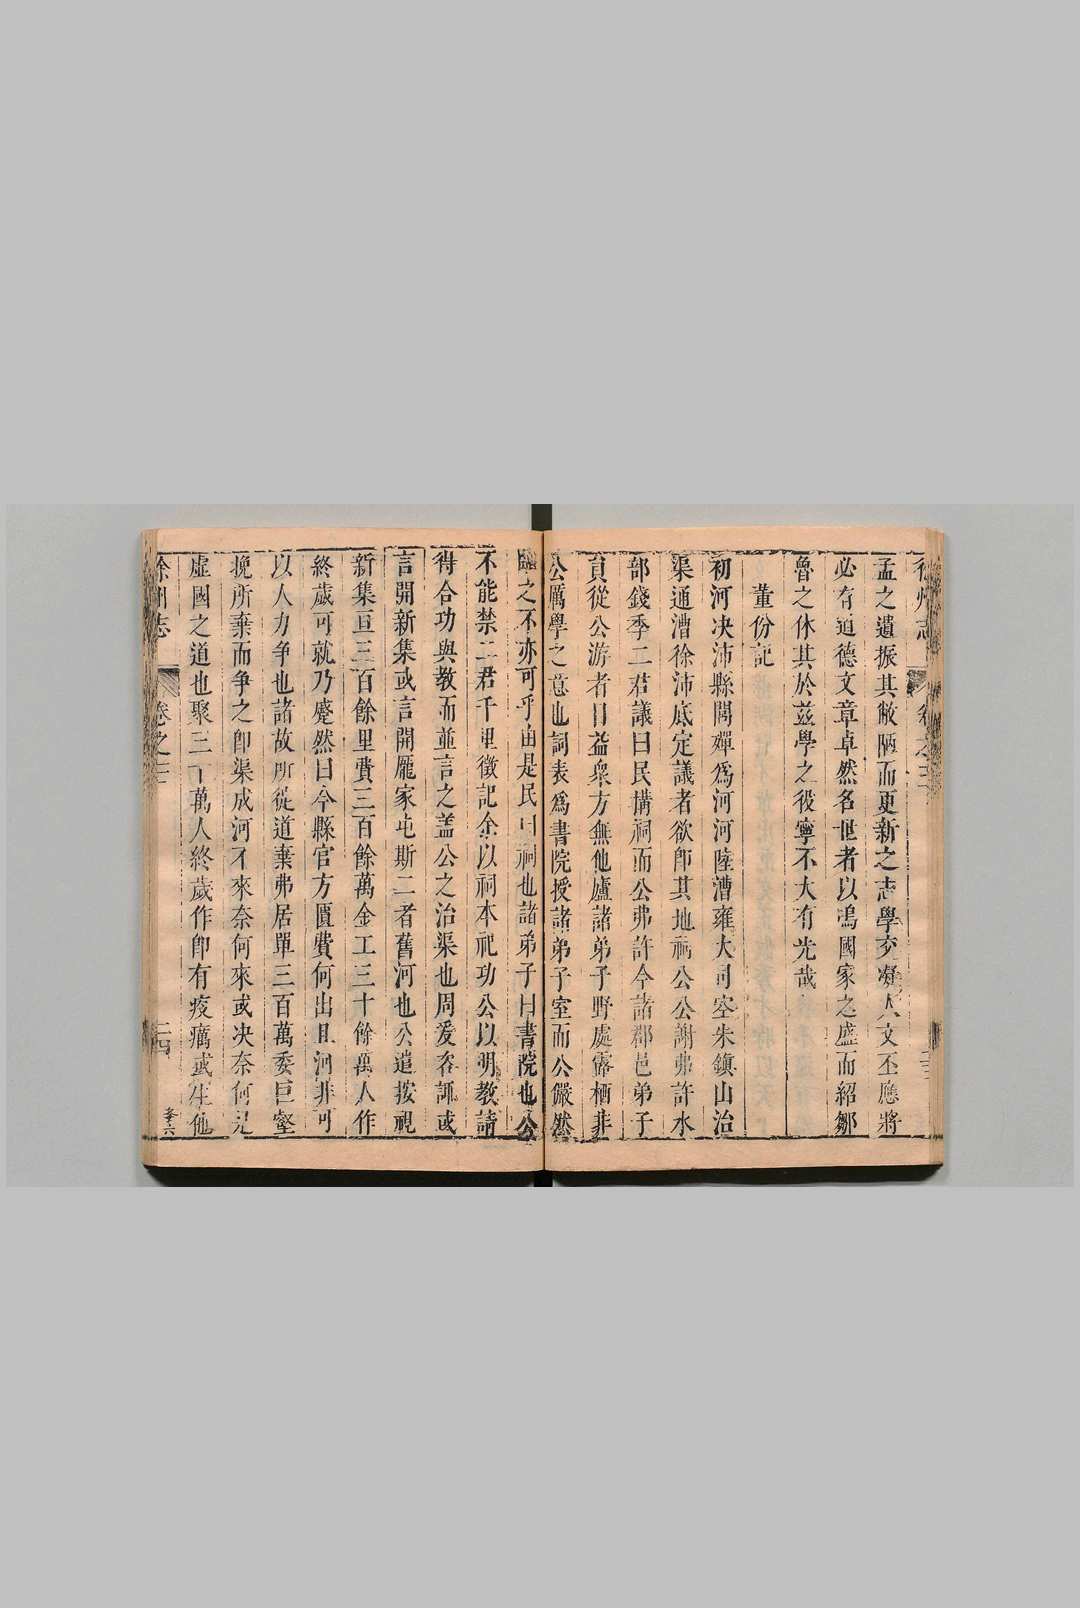 孟之遺振其敝陋而更新之志學交凝人文丕應將
必有道德文章卓然名世者以鳴國家之盛而紹鄒
魯之休其於茲學之役寧不大有光哉
董份記
初河决沛縣閼嬋爲河河陸漕雍大司空朱鎮山治
渠通漕徐沛底定議者欲卽其地祠公公謝弗許水
部錢季二君議曰民搆祠而公弗許今諸郡邑弟子
員從公游者日益衆方無他廬諸弟子野處露栖非
公厲學之意也詞表爲書院授諸弟子室而公儼然
臨之不亦可乎由是民曰祠也諸弟子曰書院也公
不能禁二君千里徵記余以祠本祀功公以明教請
得合功與教而並言之盖公之治渠也周爰咨諏或
言開新集或言開龎家屯斯二者舊河也公遣按視
新集亘三百餘里費三百餘萬金工三十餘萬人作
終歲可就乃蹙然曰今縣官方匱費何出且河非可
以人力争也諸故所從道棄弗居單三百萬委巨壑
挽所棄而争之卽渠成河不來奈何來或决奈何是
虛國之道也聚三十萬人終歲作卽有疫癘或生他
徐州志
卷之三
二四